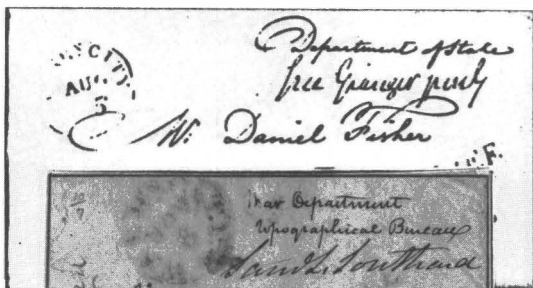 Department of State
free
CITY
AUG
5
Mr. Daniel Fisher
F.
War Department
Topographical Bureau
Saml. L. Southard